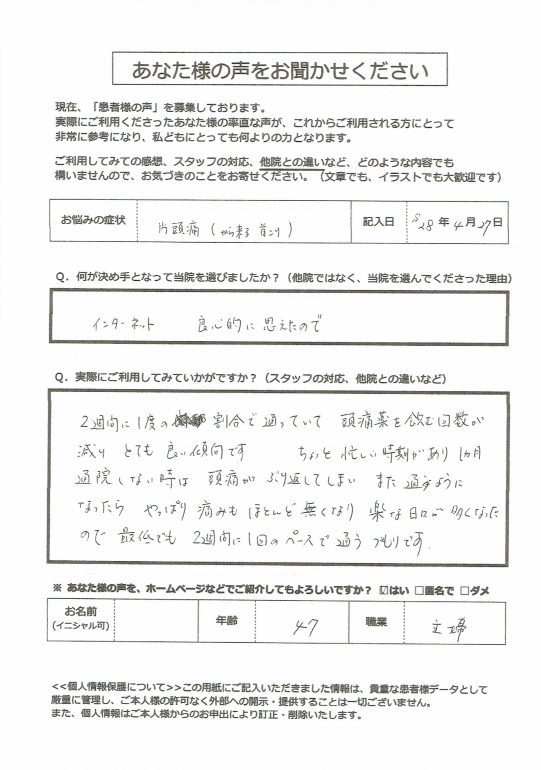 あなた様の声をお聞かせください
現在、「患者様の声」を募集しております。
実際にご利用くださったあなた様の率直な声が、これからご利用される方にとって
非常に参考になり、私どもにとっても何よりの力となります。
ご利用してみての感想、スタッフの対応、他院との違いなど、どのような内容でも
構いませんので、お気づきのことをお寄せください。（文章でも、イラストでも大歓迎です）
お悩みの症状 片頭痛（から来る 首こり） 記入日 28年4月27日
Q．何が決め手となって当院を選びましたか？（他院ではなく、当院を選んでくださった理由）
インターネット 良心的に思えたので
Q．実際にご利用してみていかがですか？（スタッフの対応、他院との違いなど）
2週間に1度の 割合で通っていて 頭痛薬を飲む回数が
減り とても良い傾向です ちょっと忙しい時期があり 1カ月
通院しない時は 頭痛が ぶり返してしまい また 通うように
なったら やっぱり 痛みも ほとんど 無くなり 楽な日々が 多くなった
ので 最低でも 2週間に1回のペースで通う つもりです。
※ あなた様の声を、ホームページなどでご紹介してもよろしいですか？ ☑はい □匿名で □ダメ
お名前 年齢 47 職業 主婦
(イニシャル可)
<<個人情報保護について>>この用紙にご記入いただきました情報は、貴重な患者様データとして
厳重に管理し、ご本人様の許可なく外部への開示・提供することは一切ございません。
また、個人情報はご本人様からのお申出により訂正・削除いたします。